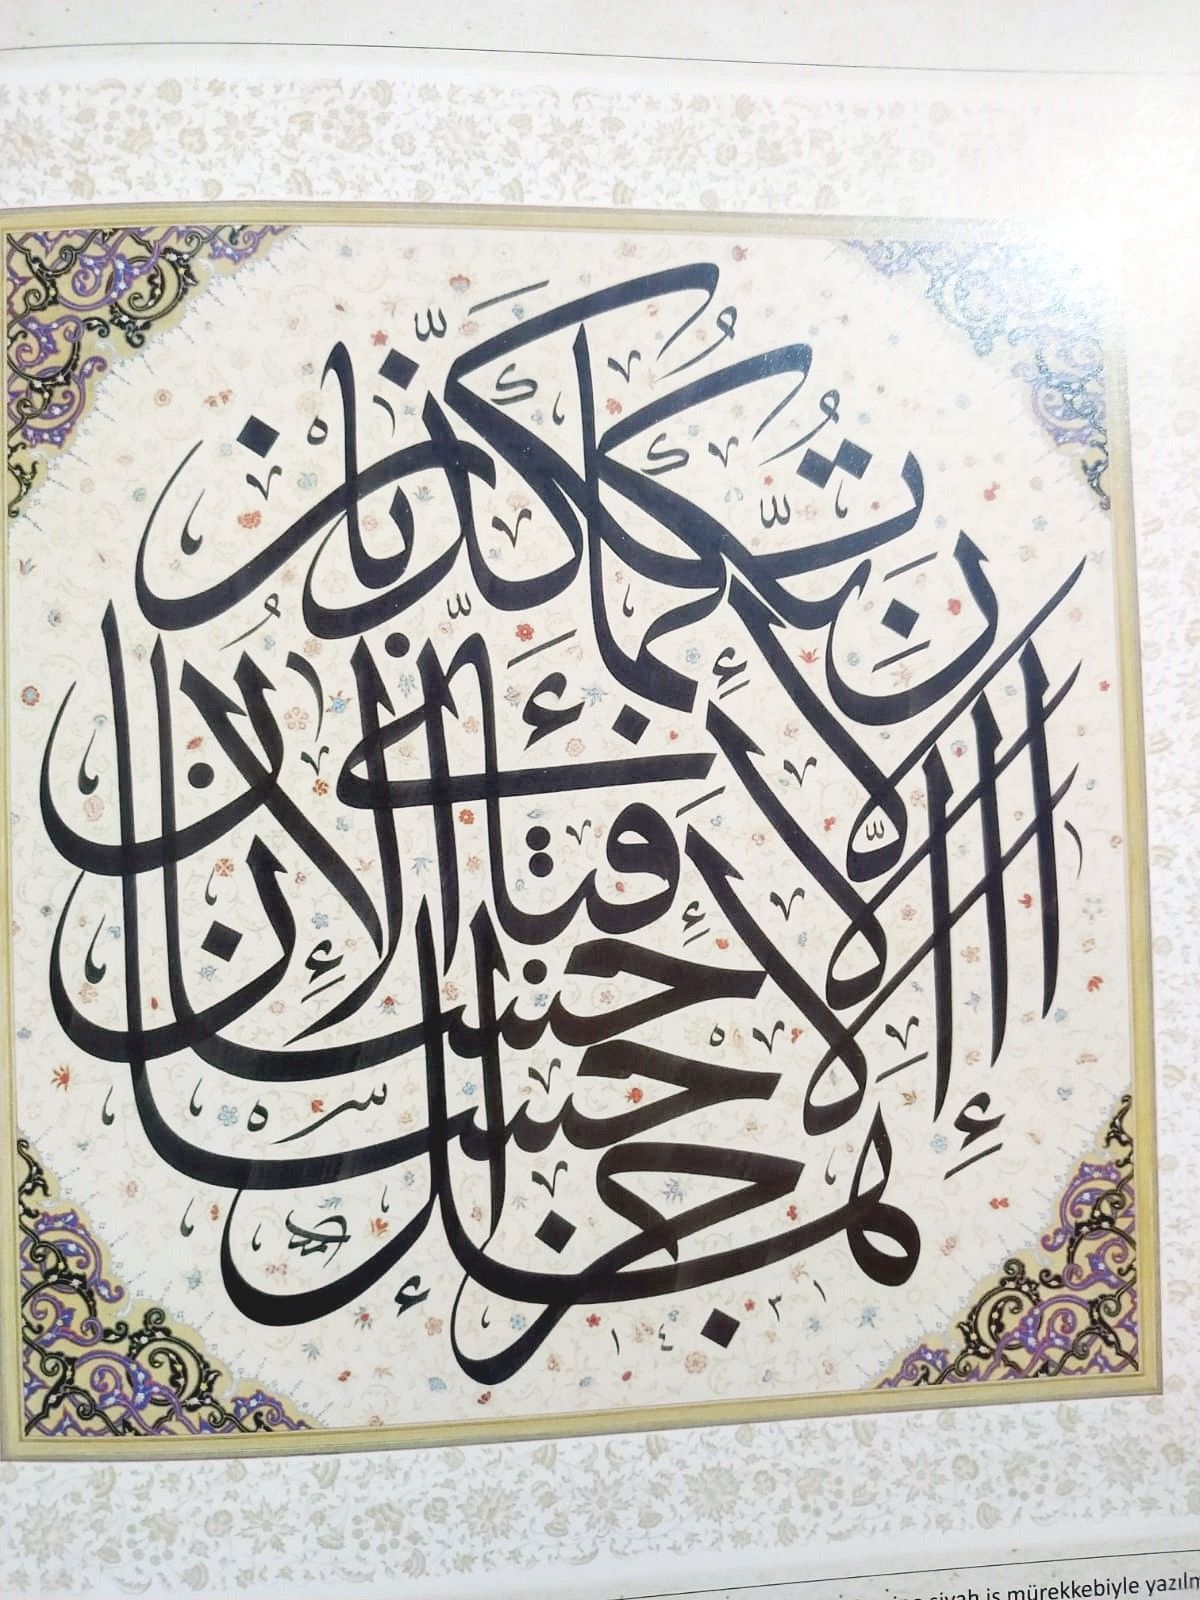 هَلْ جَزَاءُ الْإِحْسَانِ إِلَّا الْإِحْسَانُ
فَبِأَيِّ آلَاءِ رَبِّكُمَا تُكَذِّبَانِ
١٤٣١
siyah is mürekkebiyle